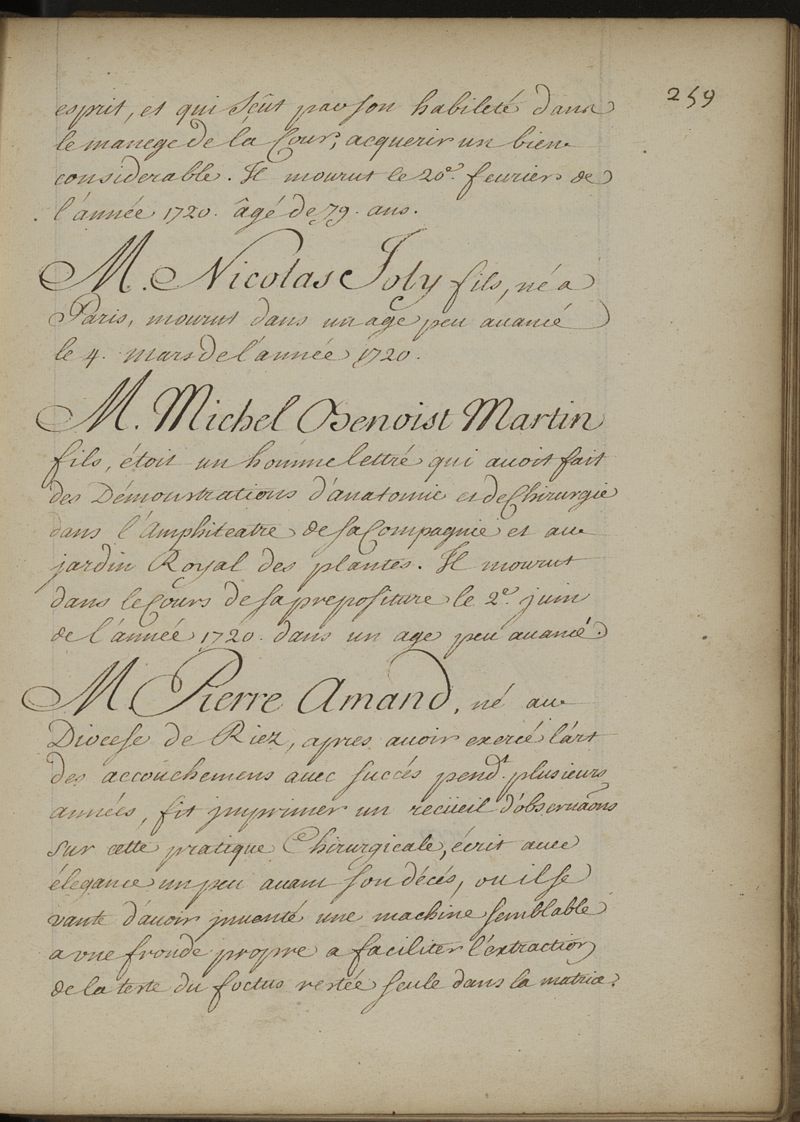 259
esprit, et qui sçût par son habileté dans
le manege de la Cour, acquerir un bien
considerable. Il mourut le 20e. feurier de
l'année 1720. âgé de 79. ans.
M. Nicolas Joly fils, né a
Paris, mourut dans un age peu auancé
le 4. mars de l'année 1720.
M. Michel Benoist Martin
fils, étoit un homme lettré qui auoit fait
des Démonstrations d'anatomie et de Chirurgie
dans l'Amphiteatre de sa Compagnie et au
jardin Royal des plantes. Il mourut
dans le Cours de sa prepositure le 2e. juin
de l'année 1720. dans un age peu auancé.
M. Pierre Amand, né au
Diocese de Riez, apres auoir exercé l'art
des accouchemens auec succés pendt. plusieurs
années, fit jmprimer un recüeil d'obseruaõns
sur cette pratique Chirurgicale, écrit auec
élegance un peu auant son décés, ou il se
vante d'auoir jnuenté une machine semblable
a vne fronde propre a faciliter l'extraction
de la teste du foetus restée seule dans la matrice.